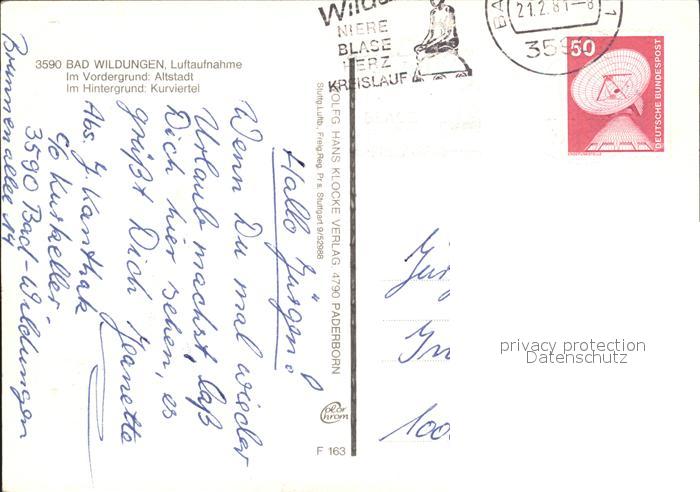 3590 BAD WILDUNGEN, Luftaufnahme
Im Vordergrund: Altstadt
Im Hintergrund: Kurviertel
Hallo Jürgen!
Wenn Du mal wieder
Urlaub machst, laß
Dich hier sehen, es
grüßt Dich Jeanette
Abs. J. Kanthak
c/o Kurkeller
3590 Bad-Wildungen
Brunnenallee 14
WOLFG. HANS KLOCKE VERLAG 4790 PADERBORN
Stuttg. Luftb., Freig. Reg. Präs. Stuttgart 9/52988
color
chrom
F 163
NIERE
BLASE
HERZ
KREISLAUF
21.2.81-8
359
50
DEUTSCHE BUNDESPOST
Jür
In
100
privacy protection
Datenschutz